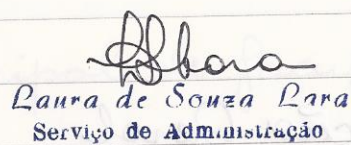 Laura de Souza Lara
Serviço de Administração